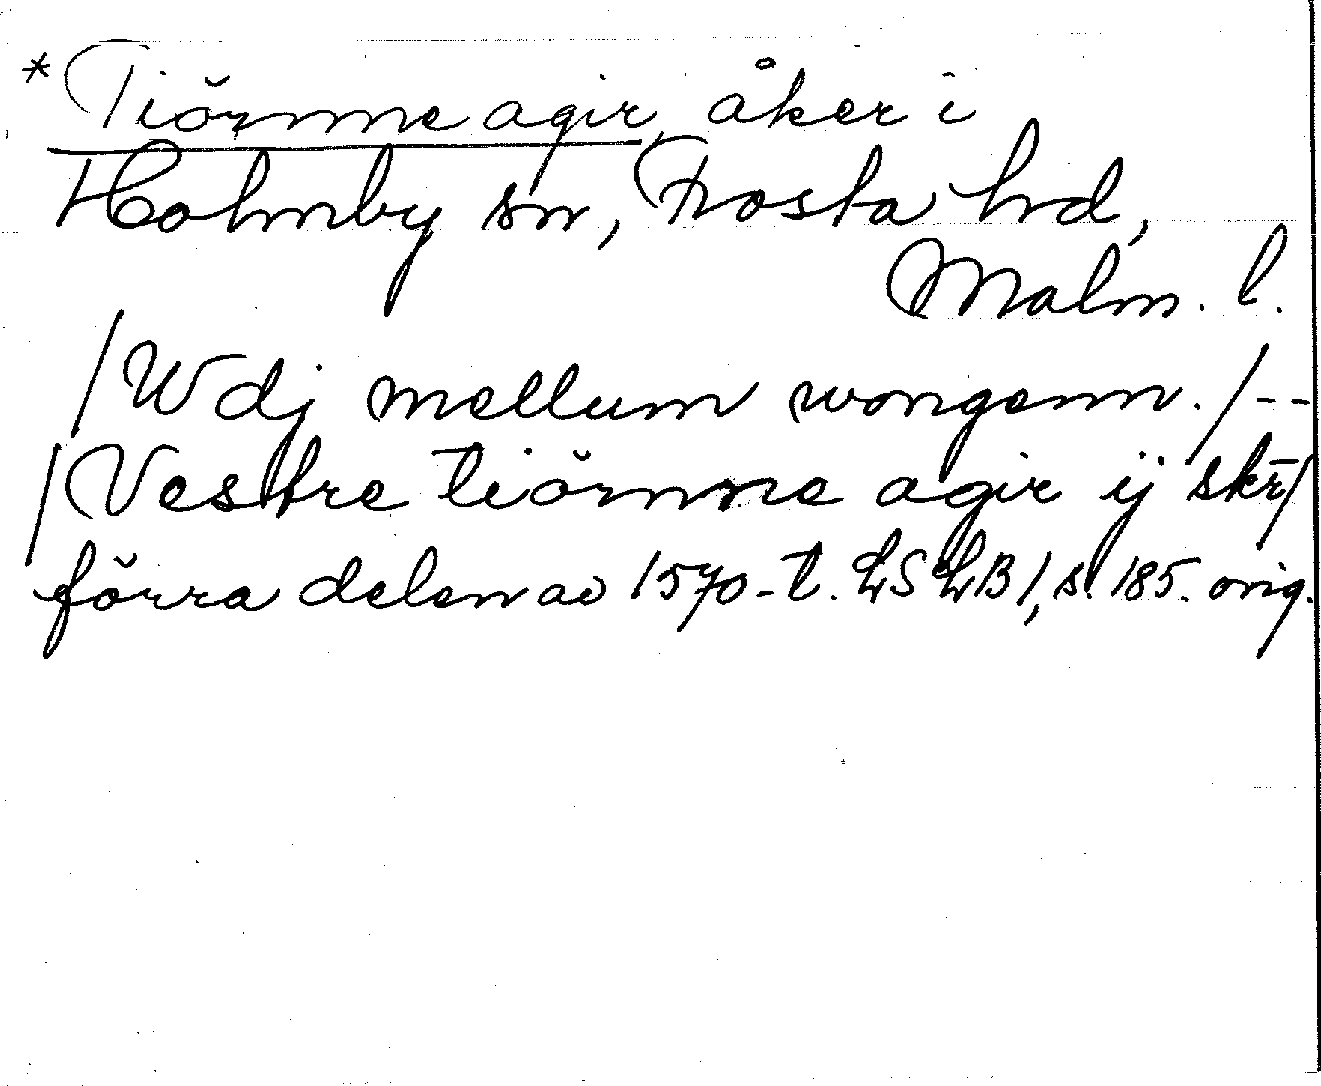 * Tiörnne agir, åker i
Holmby sn, Frosta hd,
Malm. l.
/Wdj mellum wongenn./--
/Vestre tiörnne agir ij skr̄/
förra delen av 1570-t. LSLB1, s. 185. orig.